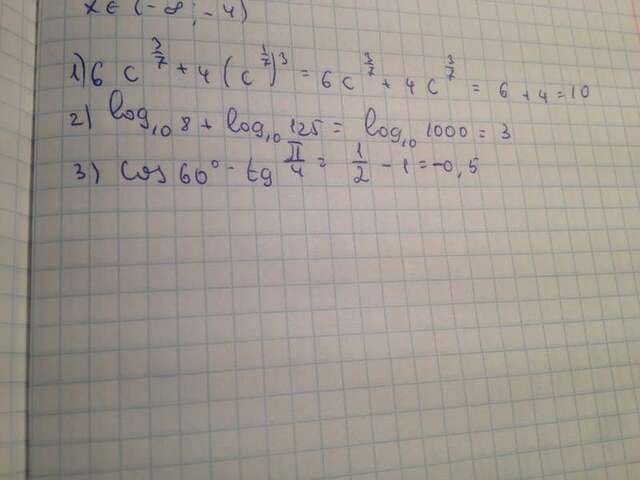 x ∈ (-∞; -4)
1) 6 c^{3/7} + 4 (c^{1/7})^3 = 6 c^{3/7} + 4 c^{3/7} = 6 + 4 = 10
2) log_{10} 8 + log_{10} 125 = log_{10} 1000 = 3
3) cos 60° - tg π/4 = 1/2 - 1 = -0,5